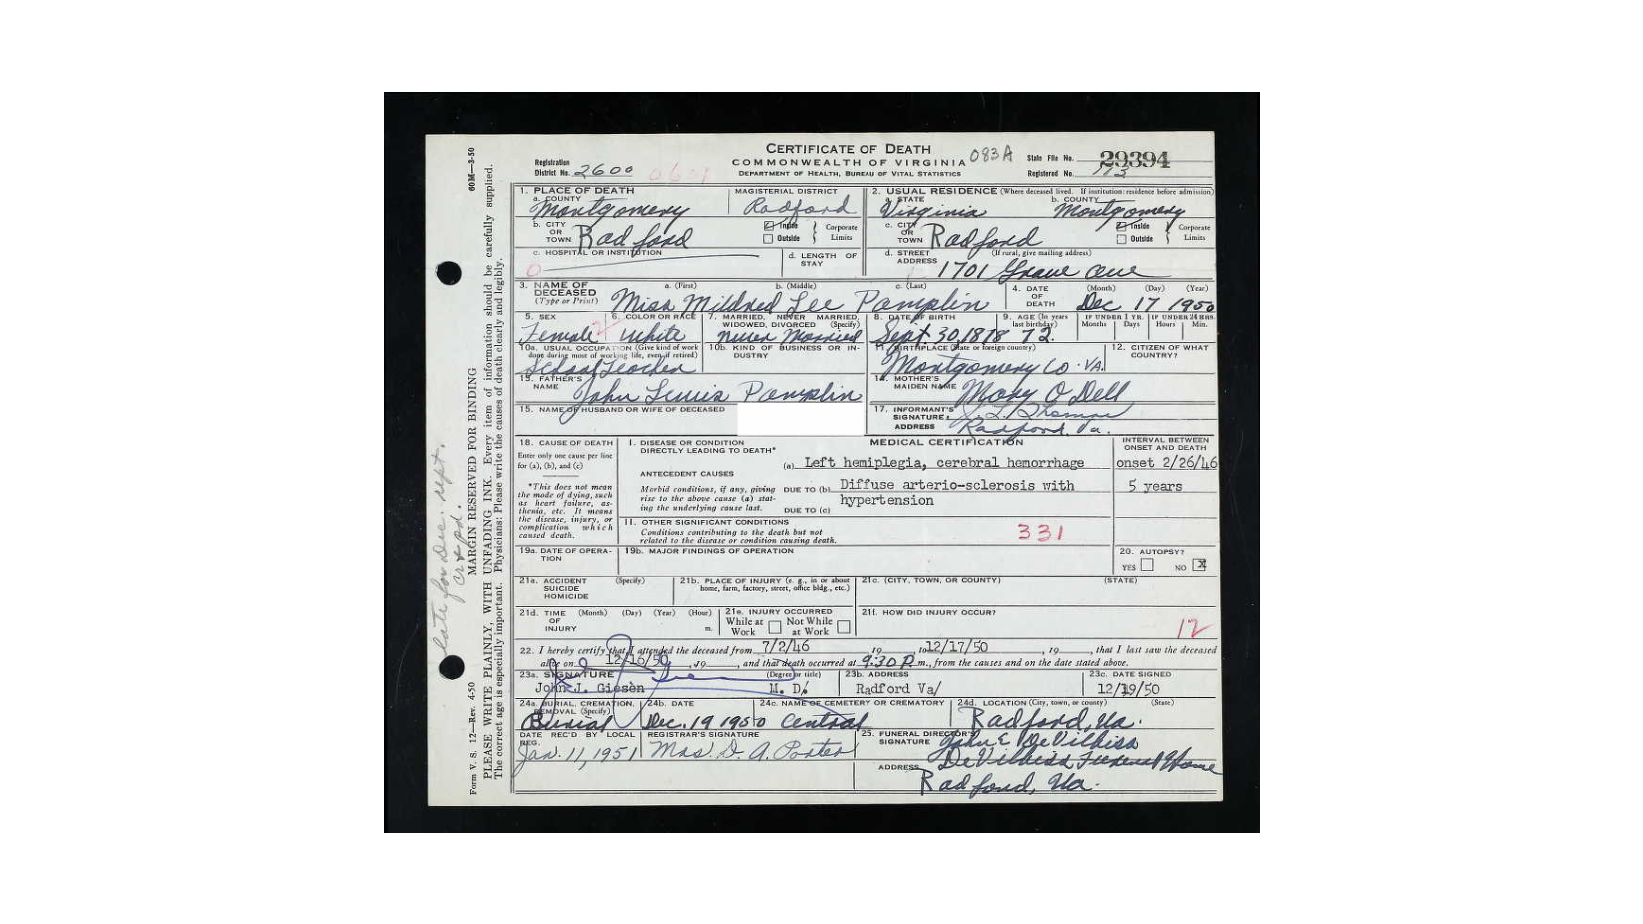 CERTIFICATE OF DEATH
COMMONWEALTH OF VIRGINIA
DEPARTMENT OF HEALTH, BUREAU OF VITAL STATISTICS
083A
Registration District No. 2600
State File No. 29394
Registered No. 173
1. PLACE OF DEATH
a. COUNTY Montgomery
MAGISTERIAL DISTRICT Radford
2. USUAL RESIDENCE (Where deceased lived. If institution: residence before admission)
a. STATE Virginia
b. COUNTY Montgomery
b. CITY OR TOWN Radford
Inside
Outside
Corporate Limits
c. CITY OR TOWN Radford
Inside
Outside
Corporate Limits
c. HOSPITAL OR INSTITUTION
d. LENGTH OF STAY
d. STREET ADDRESS (If rural, give mailing address)
1701 Grove Ave
3. NAME OF DECEASED (Type or Print)
a. (First) b. (Middle) c. (Last)
Miss Mildred Lee Pamplin
4. DATE OF DEATH (Month) (Day) (Year)
Dec 17 1950
5. SEX Female
6. COLOR OR RACE White
7. MARRIED, NEVER MARRIED, WIDOWED, DIVORCED (Specify) Never Married
8. DATE OF BIRTH Sept. 30, 1878
9. AGE (In years last birthday) 72
IF UNDER 1 YR. Months Days
IF UNDER 24 HRS. Hours Min.
10a. USUAL OCCUPATION (Give kind of work done during most of working life, even if retired)
School Teacher
10b. KIND OF BUSINESS OR INDUSTRY
11. BIRTHPLACE (State or foreign country)
Montgomery Co. VA.
12. CITIZEN OF WHAT COUNTRY?
13. FATHER'S NAME John Lewis Pamplin
14. MOTHER'S MAIDEN NAME Mary O Dell
15. NAME OF HUSBAND OR WIFE OF DECEASED
17. INFORMANT'S SIGNATURE
ADDRESS Radford, Va.
18. CAUSE OF DEATH
Enter only one cause per line for (a), (b), and (c)
*This does not mean the mode of dying, such as heart failure, asthenia, etc. It means the disease, injury, or complication which caused death.
MEDICAL CERTIFICATION
I. DISEASE OR CONDITION DIRECTLY LEADING TO DEATH*
(a) Left hemiplegia, cerebral hemorrhage
INTERVAL BETWEEN ONSET AND DEATH
onset 2/26/46
ANTECEDENT CAUSES
Morbid conditions, if any, giving rise to the above cause (a) stating the underlying cause last.
DUE TO (b) Diffuse arterio-sclerosis with hypertension
5 years
DUE TO (c)
II. OTHER SIGNIFICANT CONDITIONS
Conditions contributing to the death but not related to the disease or condition causing death.
331
19a. DATE OF OPERATION
19b. MAJOR FINDINGS OF OPERATION
20. AUTOPSY?
YES NO X
21a. ACCIDENT SUICIDE HOMICIDE (Specify)
21b. PLACE OF INJURY (e. g., in or about home, farm, factory, street, office bldg., etc.)
21c. (CITY, TOWN, OR COUNTY) (STATE)
21d. TIME OF INJURY (Month) (Day) (Year) (Hour) m.
21e. INJURY OCCURRED
While at Work Not While at Work
21f. HOW DID INJURY OCCUR?
12
22. I hereby certify that I attended the deceased from 7/2/46, 19, to 12/17/50, 19, that I last saw the deceased
alive on 12/16/50, 19, and that death occurred at 9:30 P.m., from the causes and on the date stated above.
23a. SIGNATURE (Degree or title)
John J. Giesen M. D.
23b. ADDRESS
Radford Va/
23c. DATE SIGNED
12/19/50
24a. BURIAL, CREMATION, REMOVAL (Specify) Burial
24b. DATE Dec. 19 1950
24c. NAME OF CEMETERY OR CREMATORY Central
24d. LOCATION (City, town, or county) (State)
Radford, Va.
DATE REC'D BY LOCAL REG. Jan. 11, 1951
REGISTRAR'S SIGNATURE Mrs. D. A. Porter
25. FUNERAL DIRECTOR'S SIGNATURE John E. DeVilbiss
DeVilbiss Funeral Home
ADDRESS Radford, Va.
Form V. S. 12—Rev. 4-50
60M—3-50
MARGIN RESERVED FOR BINDING
PLEASE WRITE PLAINLY, WITH UNFADING INK. Every item of information should be carefully supplied.
The correct age is especially important. Physicians: Please write the causes of death clearly and legibly.
late for Dec. rept.